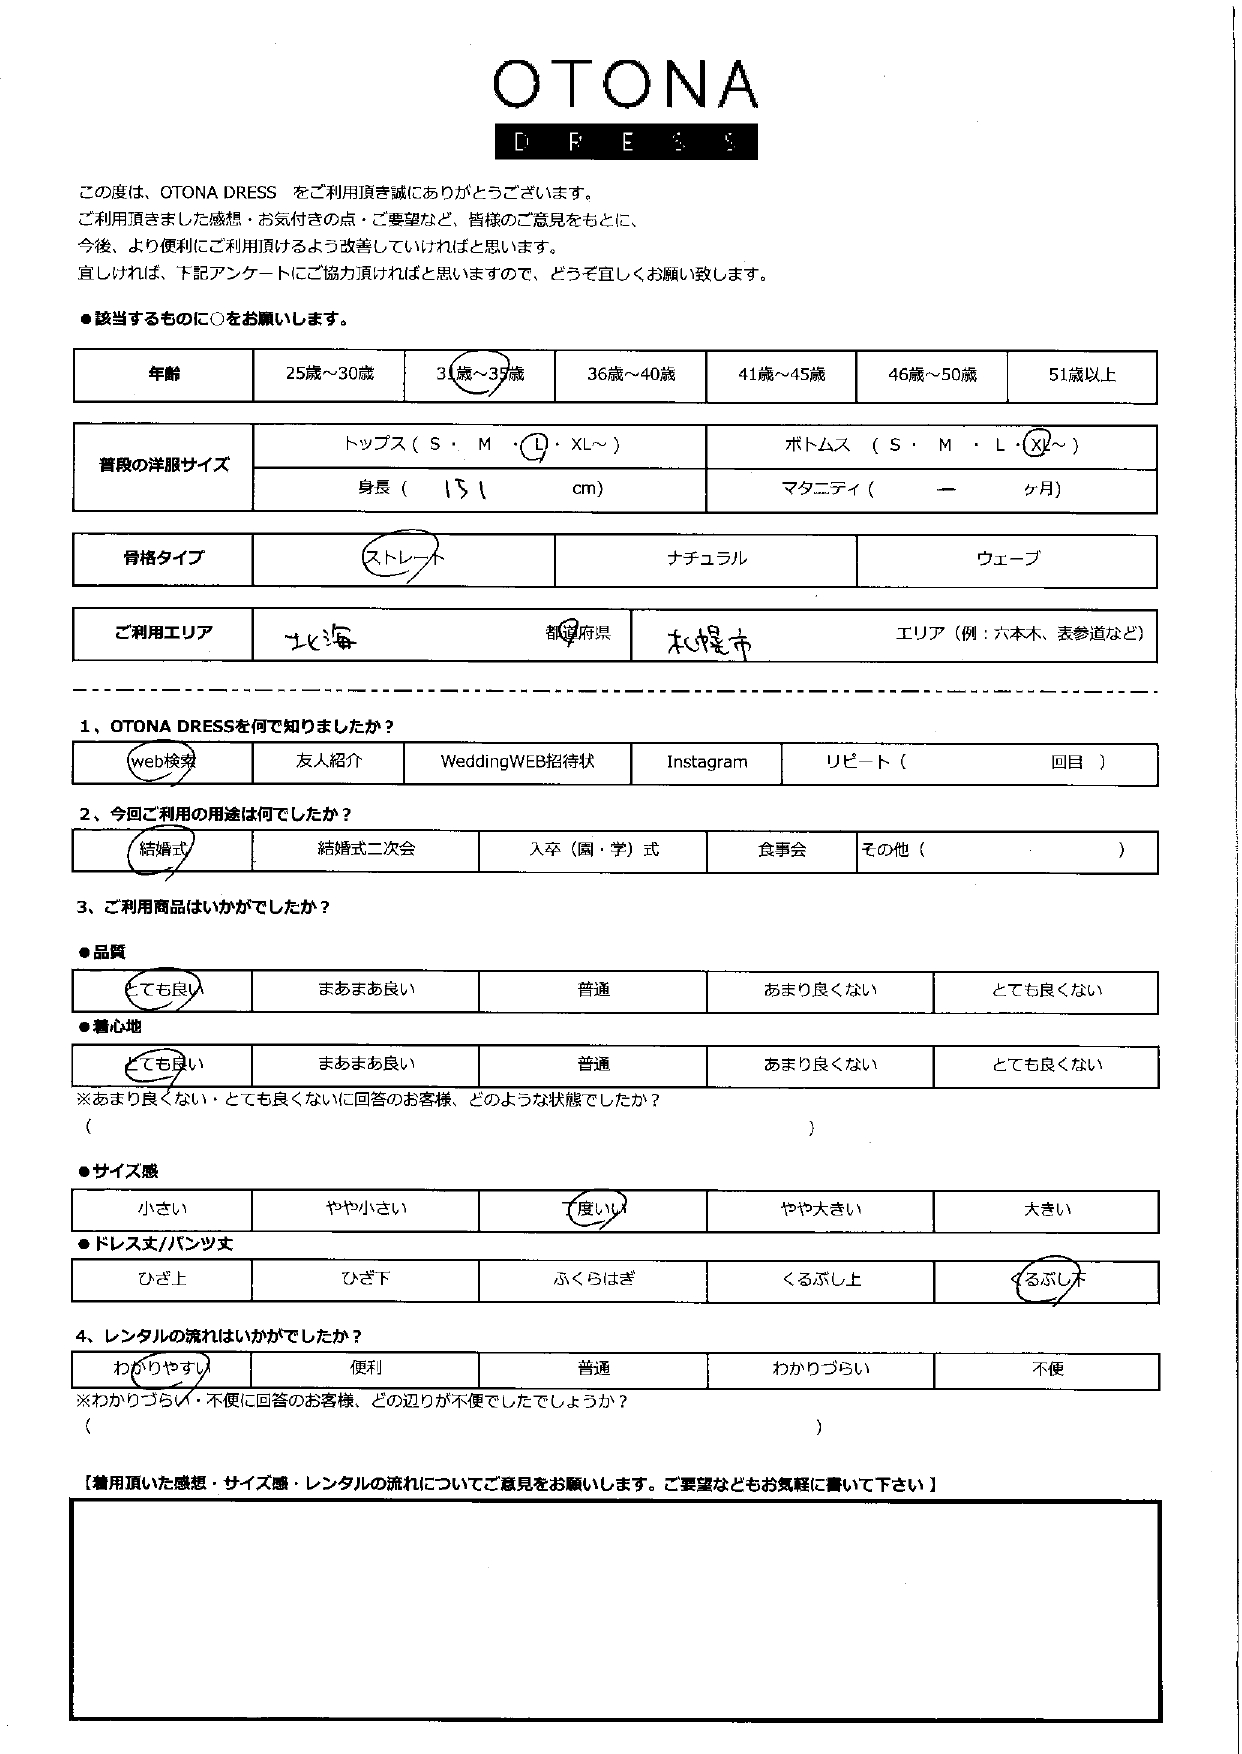 OTONA
DRESS
この度は、OTONA DRESS をご利用頂き誠にありがとうございます。
ご利用頂きました感想・お気付きの点・ご要望など、皆様のご意見をもとに、
今後、より便利にご利用頂けるよう改善していければと思います。
宜しければ、下記アンケートにご協力頂ければと思いますので、どうぞ宜しくお願い致します。
●該当するものに○をお願いします。
年齢 25歳～30歳 31歳～35歳 36歳～40歳 41歳～45歳 46歳～50歳 51歳以上
普段の洋服サイズ トップス ( S ・ M ・ L ・ XL～ ) ボトムス ( S ・ M ・ L ・ XL～ )
身長 ( 151 cm) マタニティ ( ー ヶ月)
骨格タイプ ストレート ナチュラル ウェーブ
ご利用エリア 北海 都道府県 札幌市 エリア（例：六本木、表参道など）
1、OTONA DRESSを何で知りましたか？
web検索 友人紹介 WeddingWEB招待状 Instagram リピート（ 回目 ）
2、今回ご利用の用途は何でしたか？
結婚式 結婚式二次会 入卒（園・学）式 食事会 その他（ ）
3、ご利用商品はいかがでしたか？
●品質
とても良い まあまあ良い 普通 あまり良くない とても良くない
●着心地
とても良い まあまあ良い 普通 あまり良くない とても良くない
※あまり良くない・とても良くないに回答のお客様、どのような状態でしたか？
( )
●サイズ感
小さい やや小さい 丁度いい やや大きい 大きい
●ドレス丈/パンツ丈
ひざ上 ひざ下 ふくらはぎ くるぶし上 くるぶし下
4、レンタルの流れはいかがでしたか？
わかりやすい 便利 普通 わかりづらい 不便
※わかりづらい・不便に回答のお客様、どの辺りが不便でしたでしょうか？
( )
【着用頂いた感想・サイズ感・レンタルの流れについてご意見をお願いします。ご要望などもお気軽に書いて下さい】